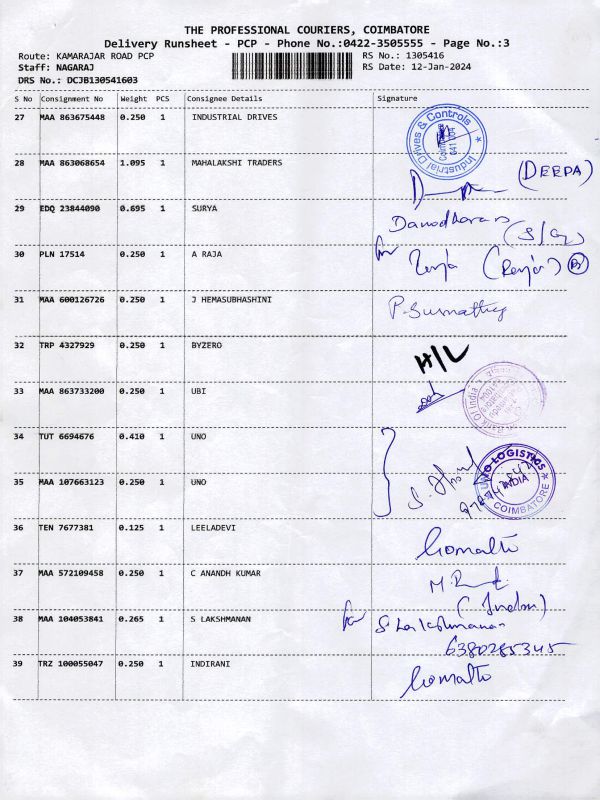 THE PROFESSIONAL COURIERS, COIMBATORE
Delivery Runsheet - PCP - Phone No.:0422-3505555 - Page No.:3
Route: KAMARAJAR ROAD PCP RS No.: 1305416
Staff: NAGARAJ RS Date: 12-Jan-2024
DRS No.: DCJB130541603
S No Consignment No Weight PCS Consignee Details Signature
27 MAA 863675448 0.250 1 INDUSTRIAL DRIVES
Industrial Drives & Controls
28 MAA 863068654 1.095 1 MAHALAKSHI TRADERS
(DEEPA)
29 EDQ 23844090 0.695 1 SURYA
30 PLN 17514 0.250 1 A RAJA
31 MAA 600126726 0.250 1 J HEMASUBHASHINI
32 TRP 4327929 0.250 1 BYZERO H/L
33 MAA 863733200 0.250 1 UBI
34 TUT 6694676 0.410 1 UNO
UNO LOGISTICS INDIA COIMBATORE
35 MAA 107663123 0.250 1 UNO
36 TEN 7677381 0.125 1 LEELADEVI
37 MAA 572109458 0.250 1 C ANANDH KUMAR
38 MAA 104053841 0.265 1 S LAKSHMANAN S Lakshmanan
6380285345
39 TRZ 100055047 0.250 1 INDIRANI